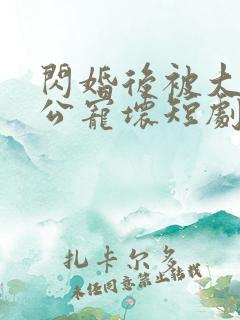 閃婚後被大
公寵壞短劇
扎卡尔多
未经同意禁止转载